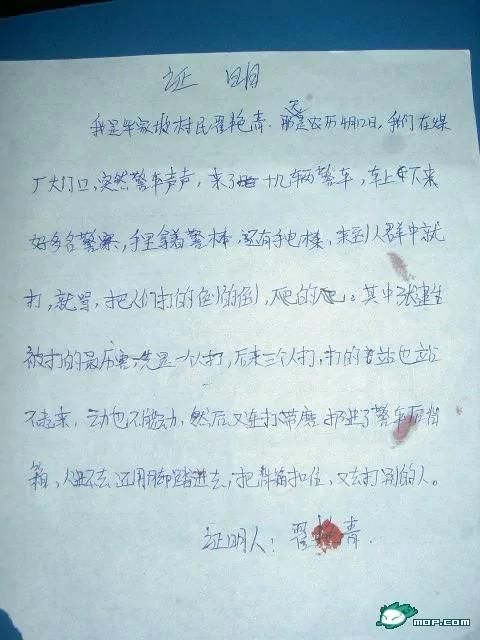 证 明
我是牛家坡村民翟艳青.那天是农历4月12日,我们在煤
厂大门口,突然警车声声,来了十几辆警车,车上下来
好多名警察,手里拿着警棒,还有手电棒,来到人群中就
打,就骂,把人们打的倒的倒,爬的爬。其中张建生
被打的最厉害,先是一个人打,后来三个人打,打的站也站
不起来,动也不能动,然后又连打带磨 扔进了警车后背
箱,人进不去还用脚踏进去,把背箱扣住,又去打别的人。
证明人:翟艳青.
MOP.COM